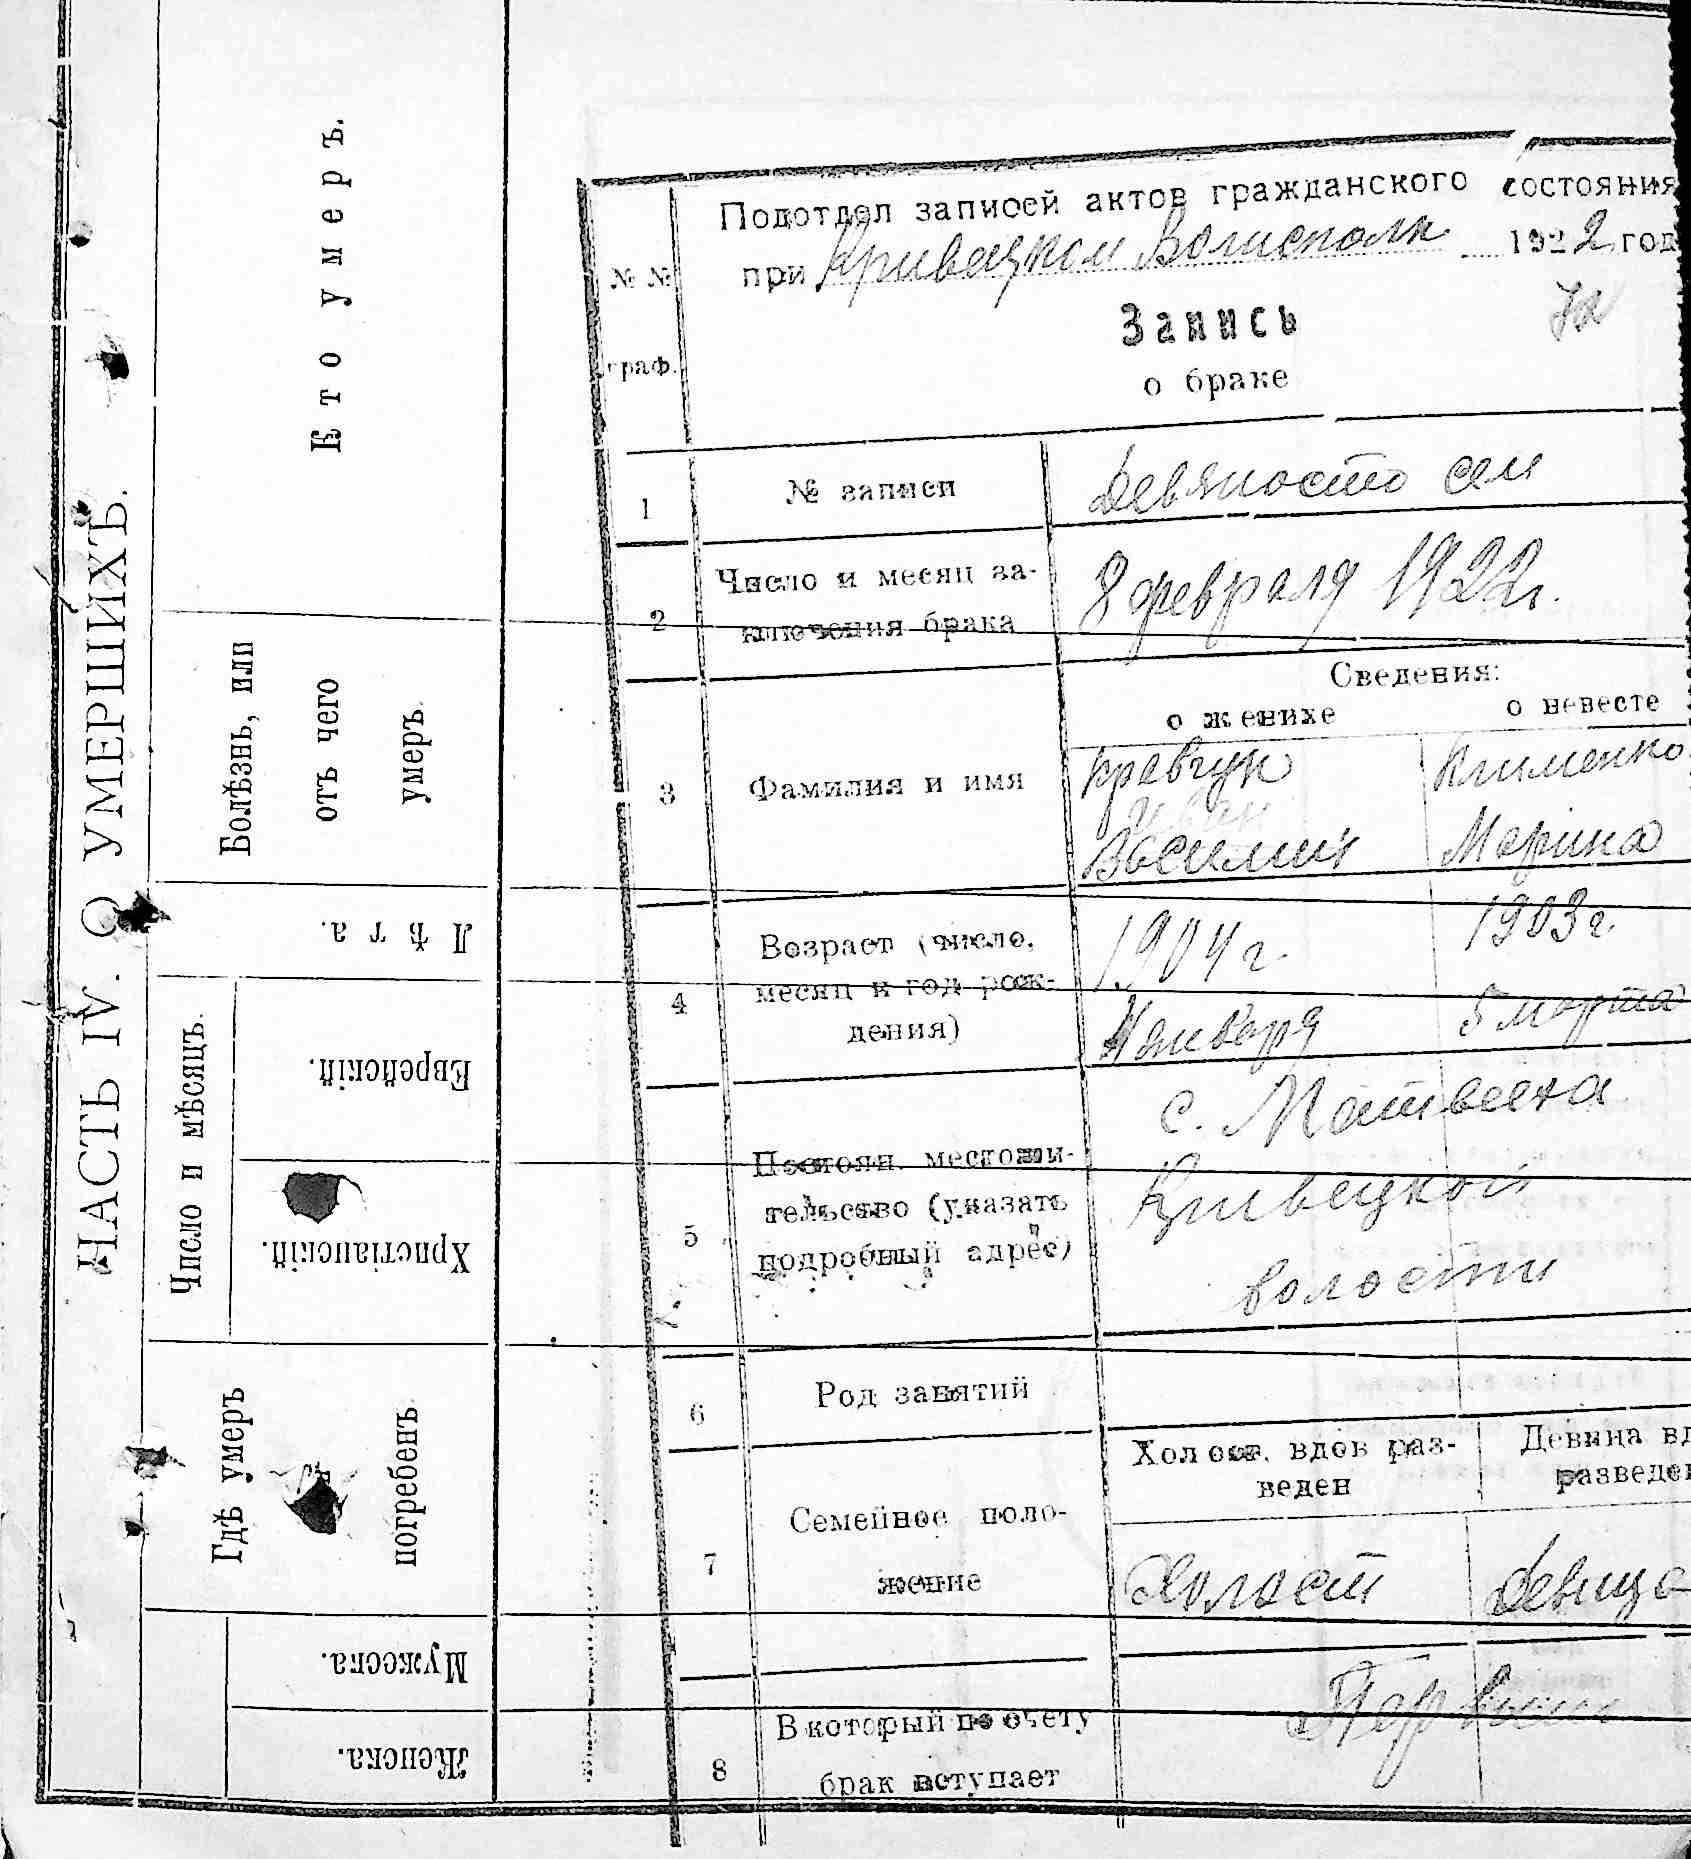 ЧАСТЬ IV. О УМЕРШИХЪ.
Кто умеръ.
Болѣзнь, или
отъ чего
умеръ.
Лѣта.
Число и мѣсяцъ.
Еврейскій.
Христіанскій.
Гдѣ умеръ
и
погребенъ
Мужеска.
Женска.
№ №
граф.
Подотдел записей актов гражданского состояния
при Кривецком Волисполк 1922 год
Запись
о браке
1
№ записи
Девяносто сем
2
Число и месяц за-
ключения брака
8 февраля 1922г.
Сведения:
о женихе
о невесте
3
Фамилия и имя
Кравчук
Иван
Василий
Клименко
Марина
4
Возраст (число,
месяц и год рож-
дения)
1904 г.
Января
1903 г.
5 марта
5
Постоян. местожи-
тельство (указать
подробный адрес)
с.
Кривецкой
волости
6
Род занятий
7
Семейное поло-
жение
Холост, вдов раз-
веден
Девица вд
разведен
Холост
Девица
8
В который по счету
брак вступает